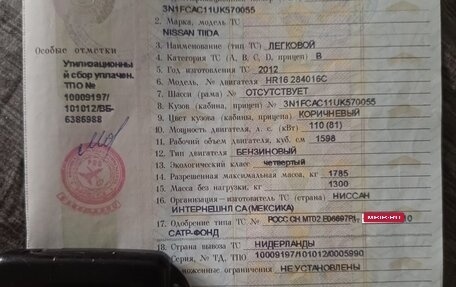 3N1FCAC11UK570055
2. Марка, модель ТС
NISSAN TIIDA
3. Наименование (тип ТС) ЛЕГКОВОЙ
4. Категория ТС (A, B, C, D, прицеп) B
5. Год изготовления ТС 2012
6. Модель, № двигателя HR16 284016C
7. Шасси (рама) № ОТСУТСТВУЕТ
8. Кузов (кабина, прицеп) № 3N1FCAC11UK570055
9. Цвет кузова (кабины, прицепа) КОРИЧНЕВЫЙ
10. Мощность двигателя, л. с. (кВт) 110 (81)
11. Рабочий объем двигателя, куб. см 1598
12. Тип двигателя БЕНЗИНОВЫЙ
13. Экологический класс четвертый
14. Разрешенная максимальная масса, кг 1785
15. Масса без нагрузки, кг 1300
16. Организация – изготовитель ТС (страна) НИССАН
ИНТЕРНЕШНЛ СА (МЕКСИКА)
17. Одобрение типа ТС № РОСС CH.MT02.E06697P1
САТР-ФОНД
18. Страна вывоза ТС НИДЕРЛАНДЫ
Серия, № ТД, ТПО 10009197/101012/0005990
Таможенные ограничения НЕ УСТАНОВЛЕНЫ
Особые отметки
Утилизационны
й сбор уплачен.
ТПО №
10009197/
101012/ВБ-
6386988